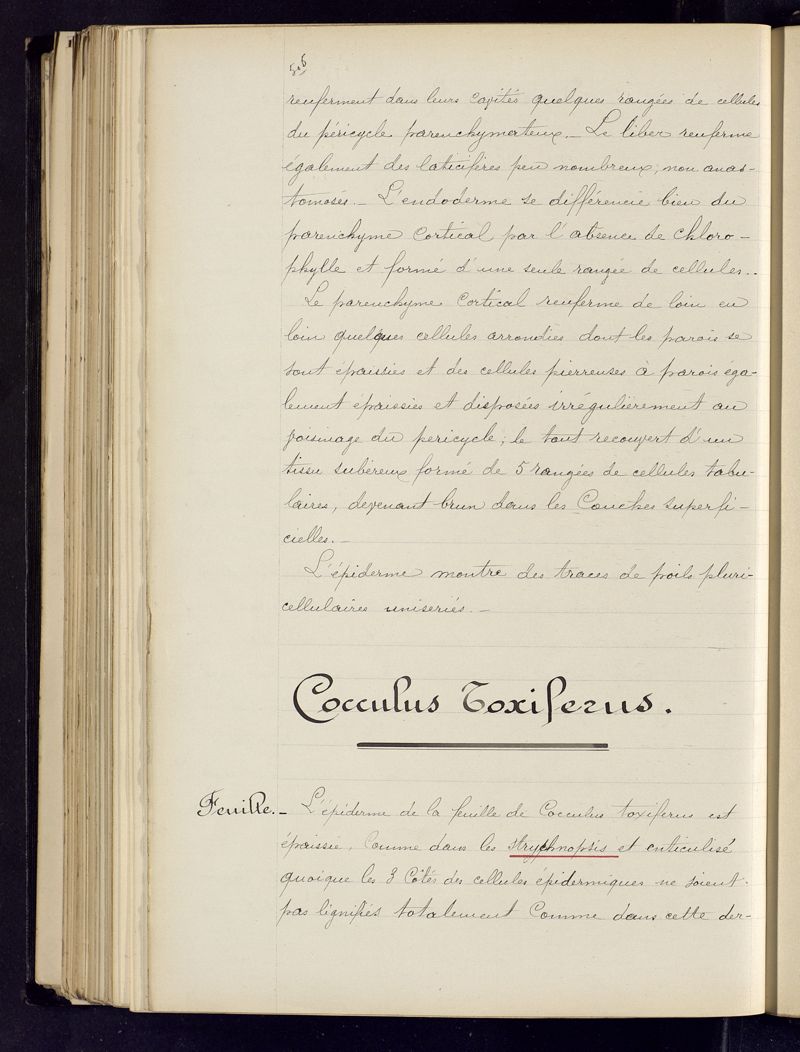 renferment dans leurs cavités quelques rangées de cellules
du péricycle parenchymateux. — Le liber renferme
également des laticifères peu nombreux, non anas-
tomosés. — L'endoderme se différencie bien du
parenchyme cortical par l'absence de chloro-
phylle et formé d'une seule rangée de cellules. -
Le parenchyme cortical renferme de loin en
loin quelques cellules arrondies dont les parois se
sont épaissies et des cellules pierreuses à parois éga-
lement épaissies et disposées irrégulièrement au
voisinage du pericycle; le tout recouvert d'un
tissu subéreux formé de 5 rangées de cellules tabu-
laires, devenant brun dans les Couches superfi-
cielles. —
L'épiderme montre des traces de poils pluri-
cellulaires uniseriés. —
Cocculus Toxiferus.
Feuille. — L'épiderme de la feuille de Cocculus toxiferus est
épaissie, Comme dans les strychnopsis et cuticulisé
quoique les 3 Côtés des cellules épidermiques ne soient
pas lignifiés totalement Comme dans cette der-